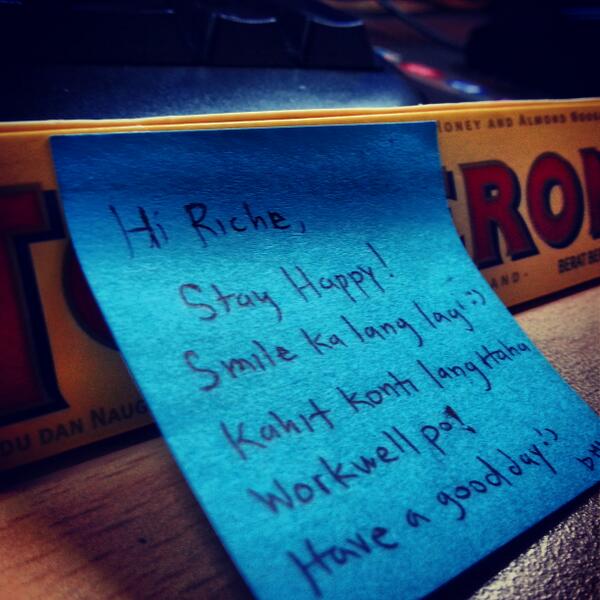 HONEY AND ALMOND NOUG
T
ERON
DU DAN NAUG
AND -
BERAT BE
Hi Riche,
Stay Happy!
Smile ka lang lagi :)
Kahit konti lang Haha
Workwell po!
Have a good day :)